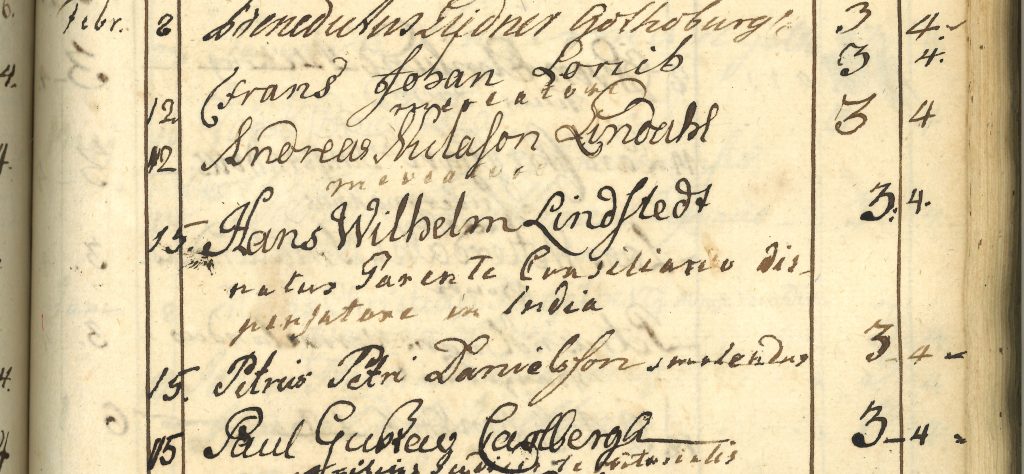 Febr. 8 Benedictus Lidner Gothoburg: 3 4.
Frans Johan Lorich 3 4.
12 mercatore
12 Andreas Nilsson Lindahl 3 4
mercatore
15. Hans Wilhelm Lindstedt 3. 4.
natus Parente Consiliario dis-
pensatore in India
15. Petrus Petri Danielsson smolendus 3 4
15 Paul Gustav Carlbergh 3 4